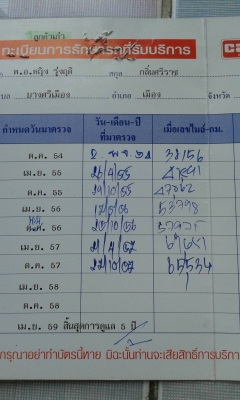 ลูกค้าเก่า
ทะเบียนการรักษารถที่รับบริการ
พ.อ.หญิง รุ่งฤดี สกุล กลิ่นศรีราช
บล บางศรีเมือง อำเภอ เมือง จังหวัด
กำหนดวันมาตรวจ วัน-เดือน-ปี ที่มาตรวจ เมื่อเลขไมล์-กม.
ต.ค. 54 38156
เม.ย. 55 26/4/55
ต.ค. 55 29/10/55 47862
เม.ย. 56 53798
ต.ค. 56
เม.ย. 57 21/4/57
ต.ค. 57 27/10/57 65534
เม.ย. 58
ต.ค. 58
เม.ย. 59 สิ้นสุดการดูแล 5 ปี
กรุณาอย่าทำบัตรนี้หาย มิฉะนั้นท่านจะเสียสิทธิ์การบริการ